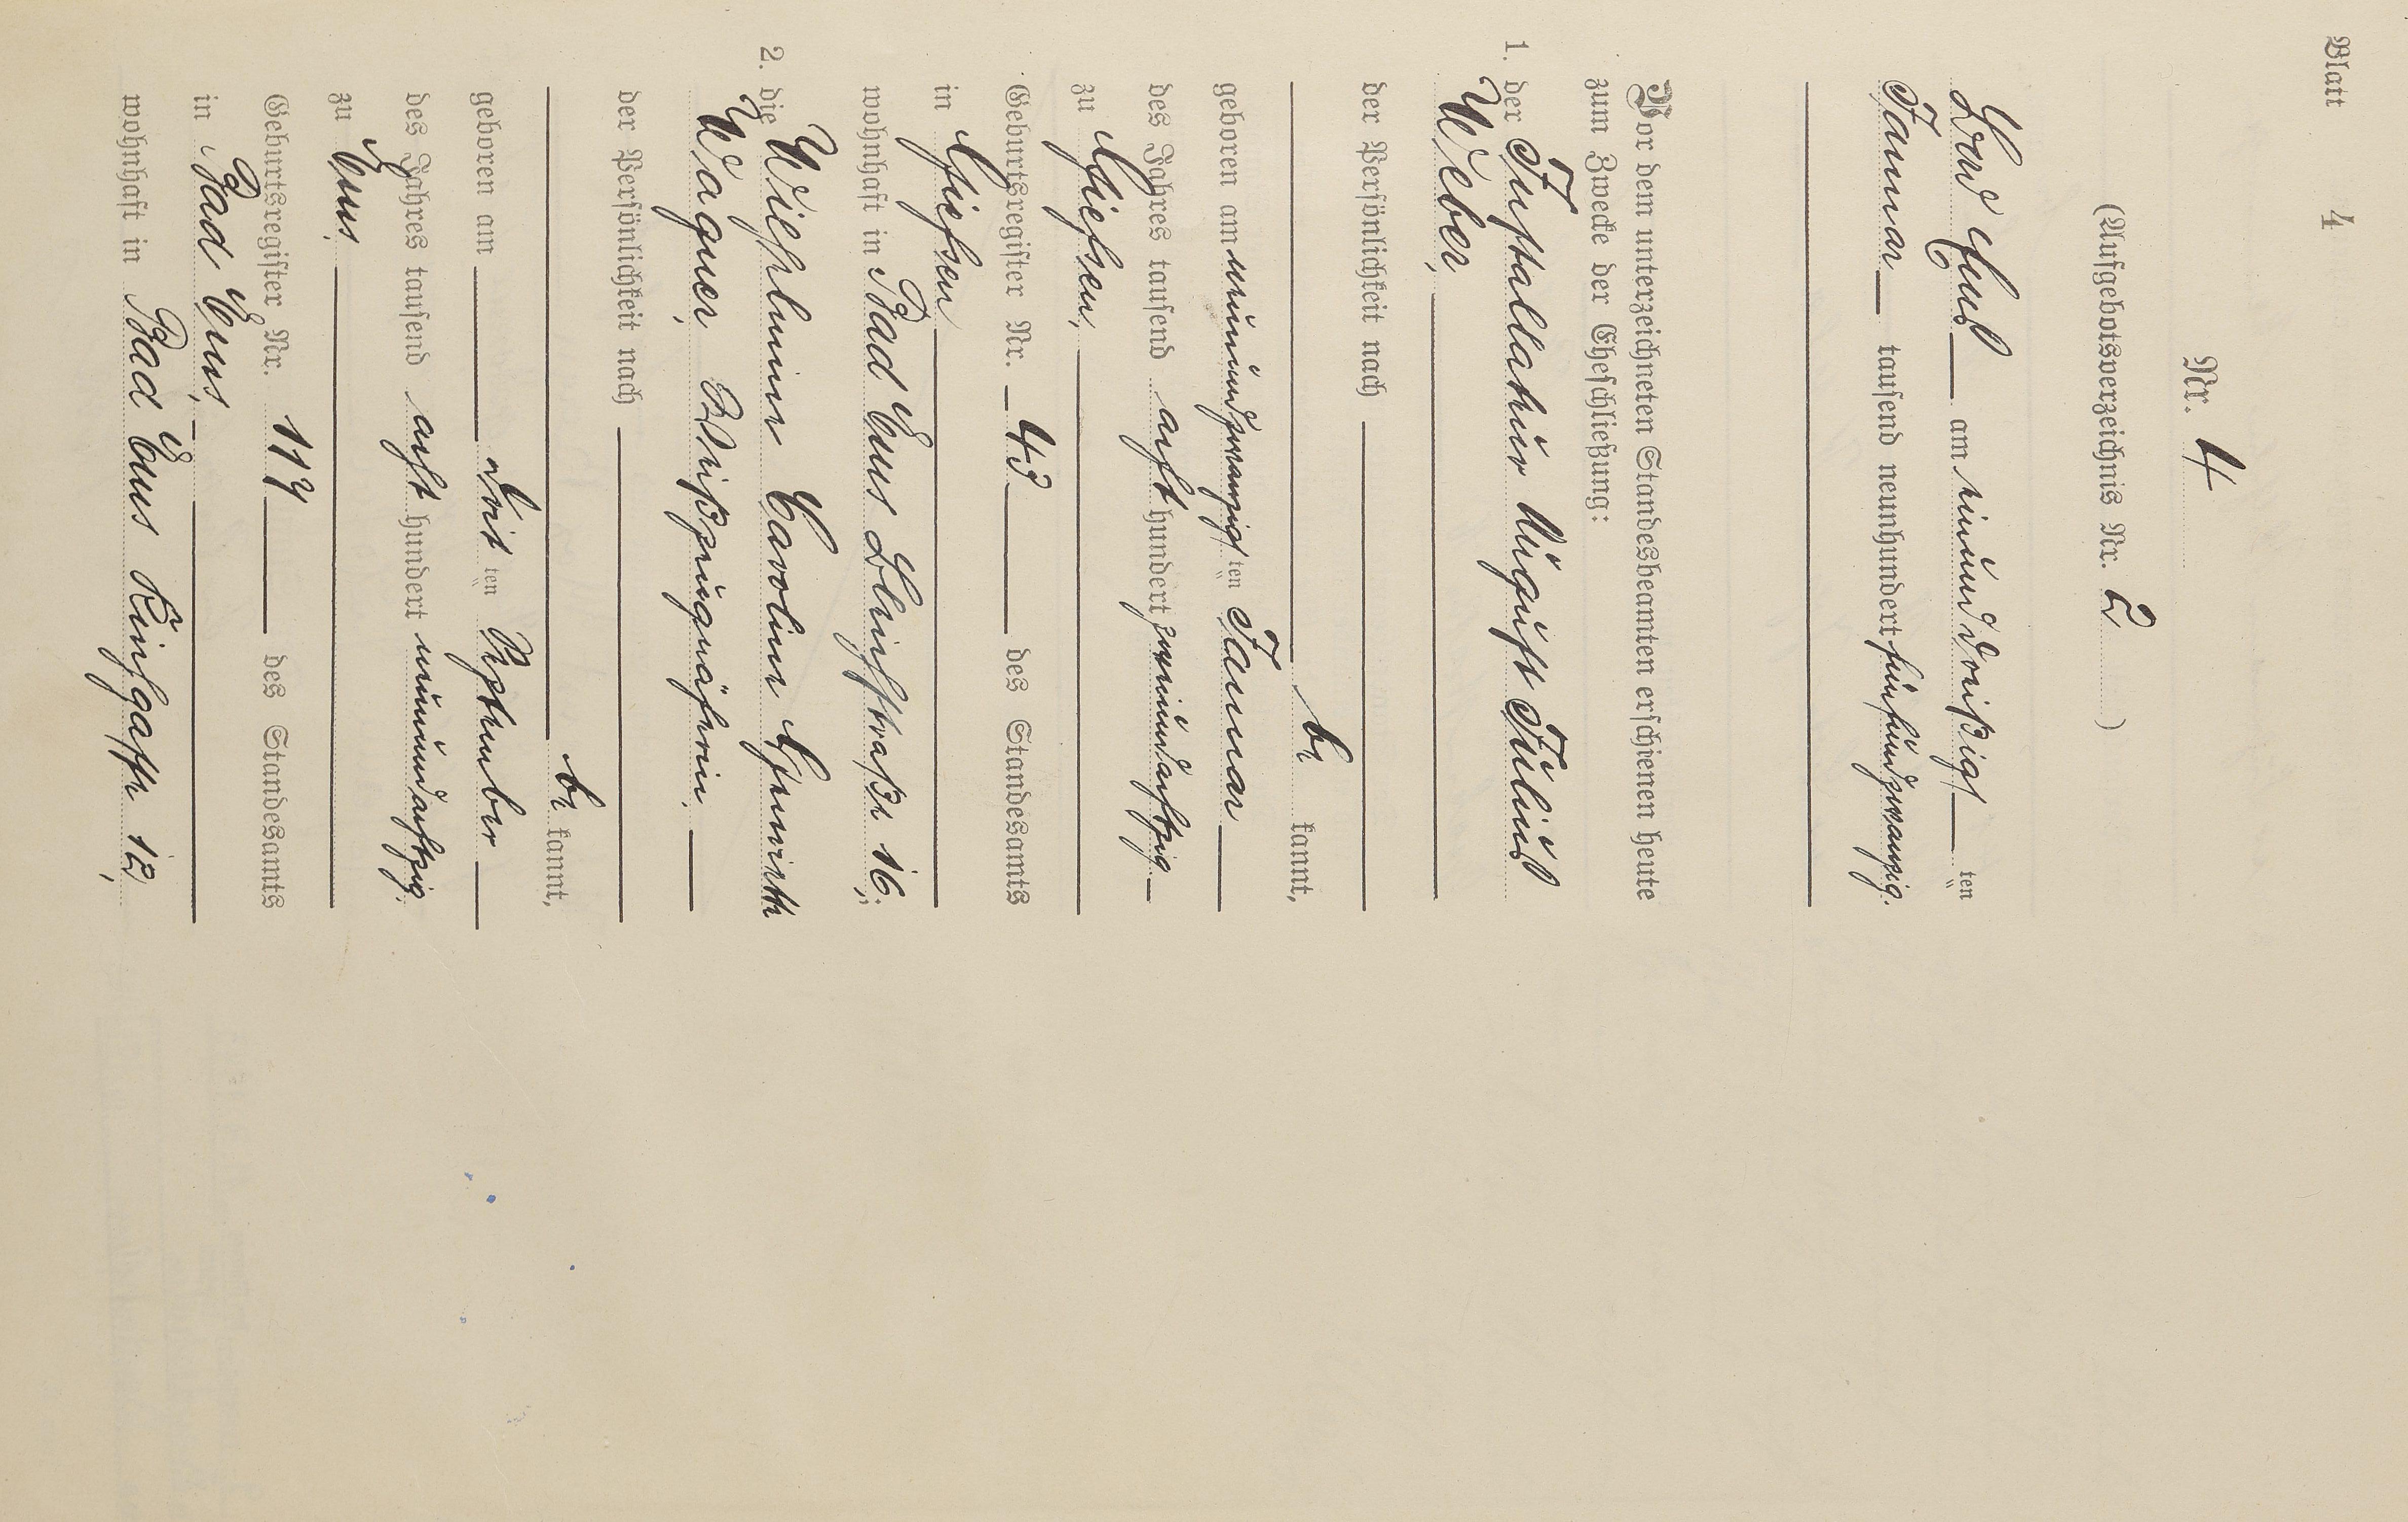 Blatt 4
Nr. 4
(Aufgebotsverzeichnis Nr. 2)
Bad Ems am einunddreißigsten
Januar tausend neunhundert fünfundzwanzig.
Vor dem unterzeichneten Standesbeamten erschienen heute
zum Zwecke der Eheschließung:
1. der Installateur August Julius
Weber,
der Persönlichkeit nach
be kannt,
geboren am neunundzwanzigsten Januar
des Jahres tausend acht hundert zweiundachtzig
zu Giessen,
Geburtsregister Nr. 43 des Standesamts
in Giessen
wohnhaft in Bad Ems Bleichstraße 16.;
2. die Wilhelmine Caroline Henriette
Wagner, Weißzeugnäherin,
der Persönlichkeit nach
be kannt,
geboren am dritten September
des Jahres tausend acht hundert neunundachtzig
zu Ems,
Geburtsregister Nr. 117 des Standesamts
in Bad Ems,
wohnhaft in Bad Ems Kirchgasse 12,